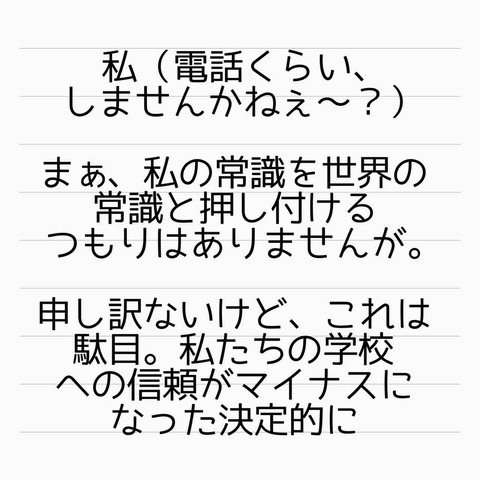 私（電話くらい、
しませんかねぇ〜？）
まぁ、私の常識を世界の
常識と押し付ける
つもりはありませんが。
申し訳ないけど、これは
駄目。私たちの学校
への信頼がマイナスに
なった決定的に